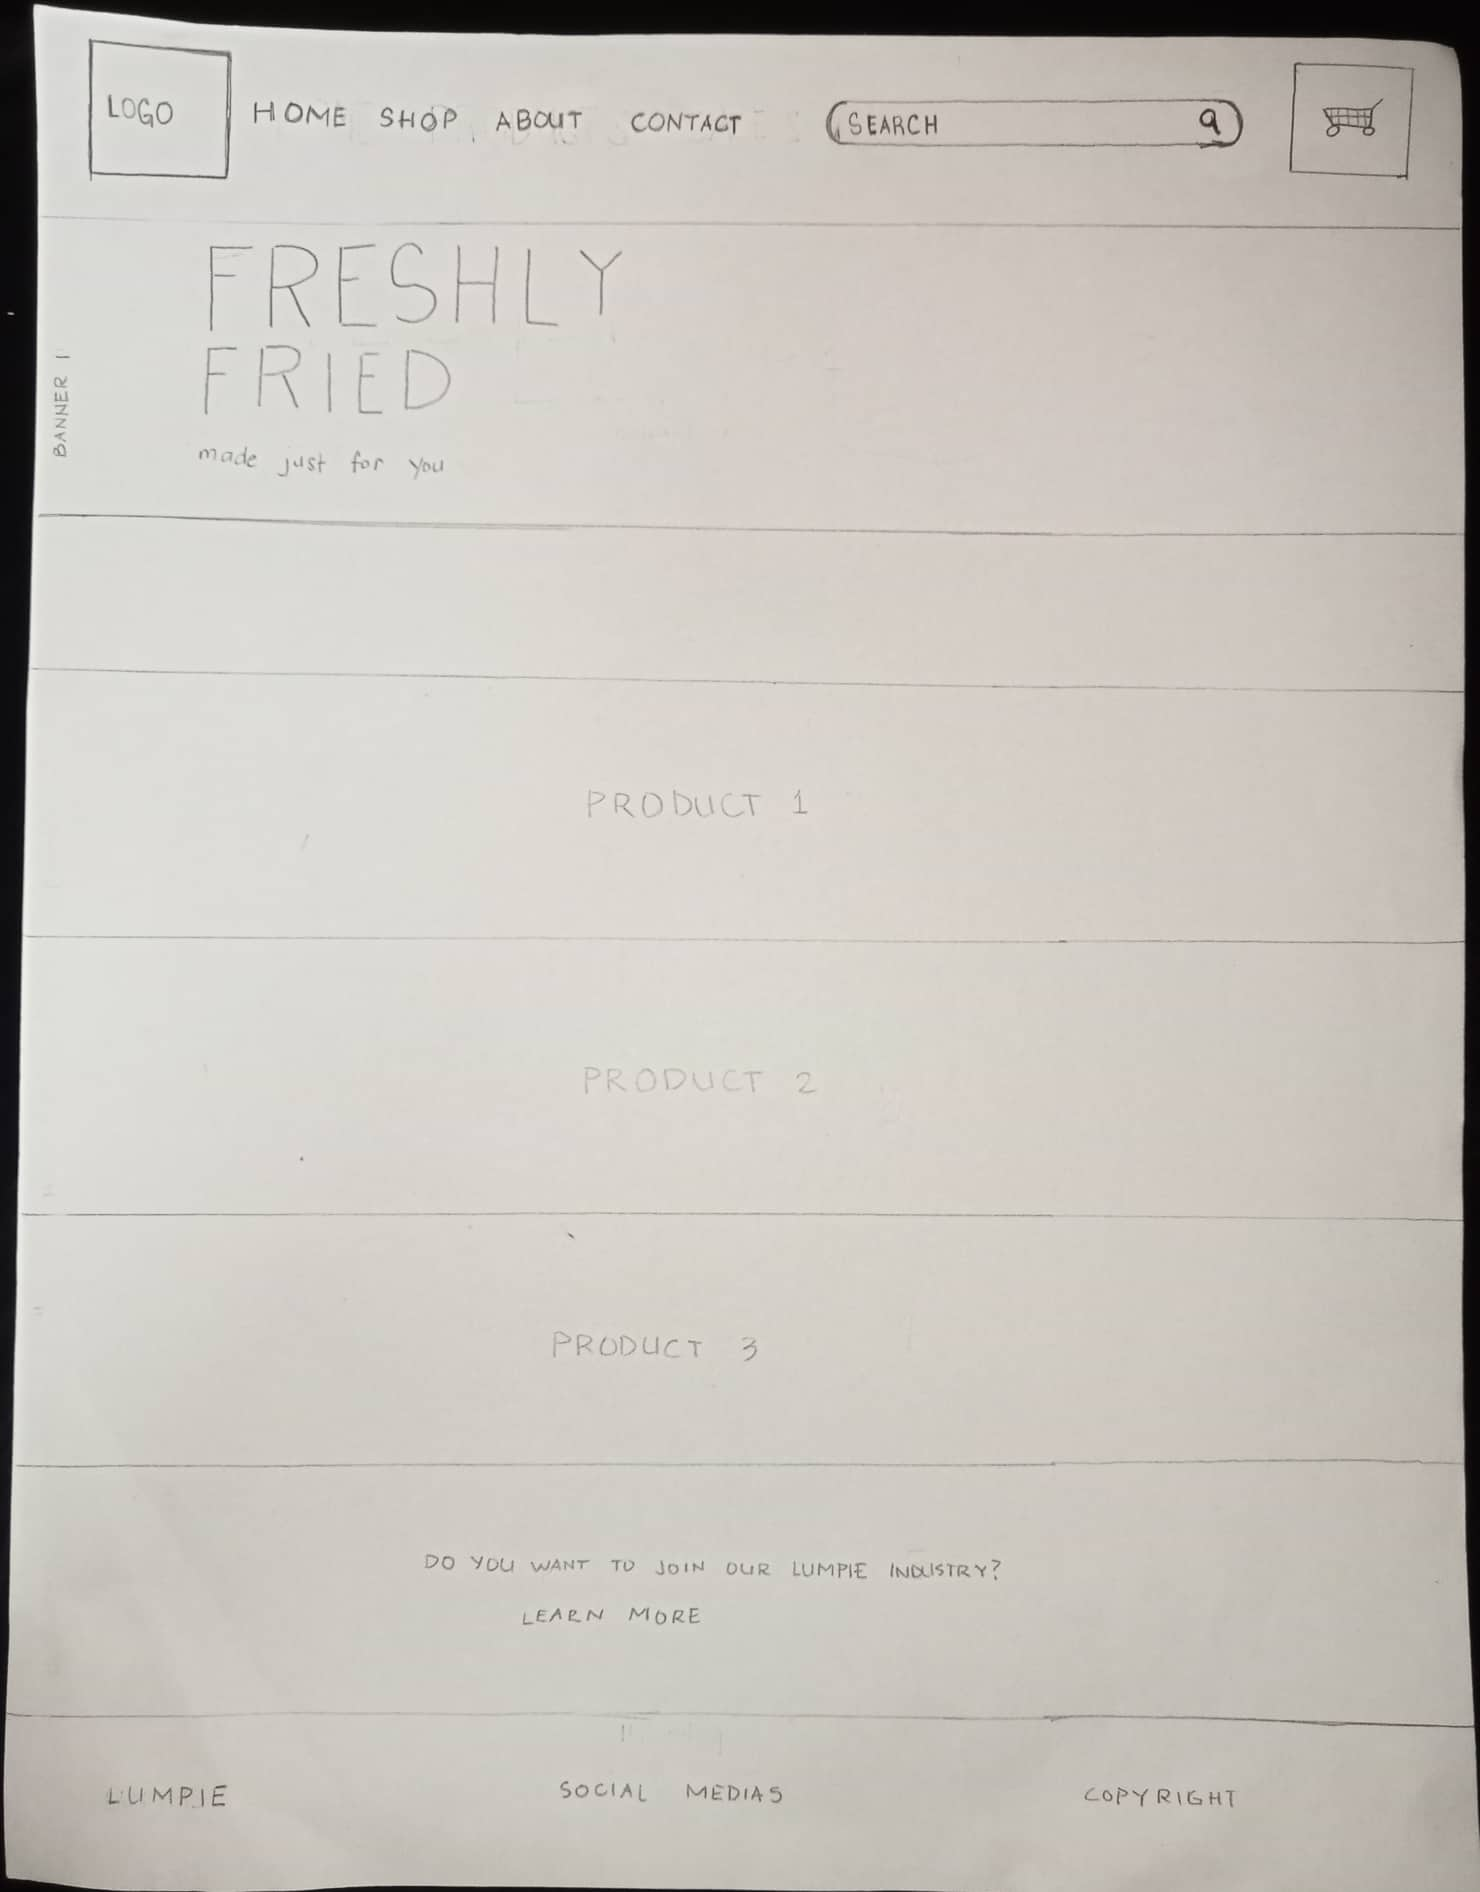 LOGO HOME SHOP ABOUT CONTACT SEARCH
FRESHLY
FRIED
made just for you
BANNER 1
PRODUCT 1
PRODUCT 2
PRODUCT 3
DO YOU WANT TO JOIN OUR LUMPIE INDUSTRY?
LEARN MORE
LUMPIE SOCIAL MEDIAS COPYRIGHT